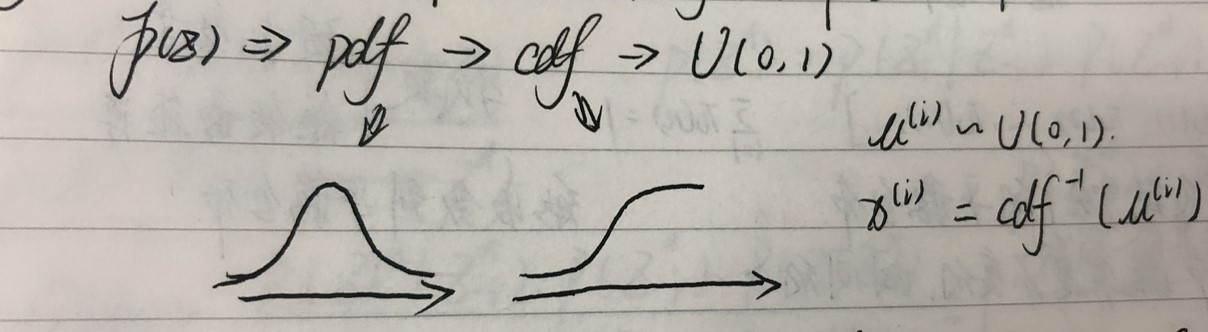 p(z) ⇒ pdf → cdf → U(0,1)
u^(i) ~ U(0,1).
z^(i) = cdf^-1 (u^(i))